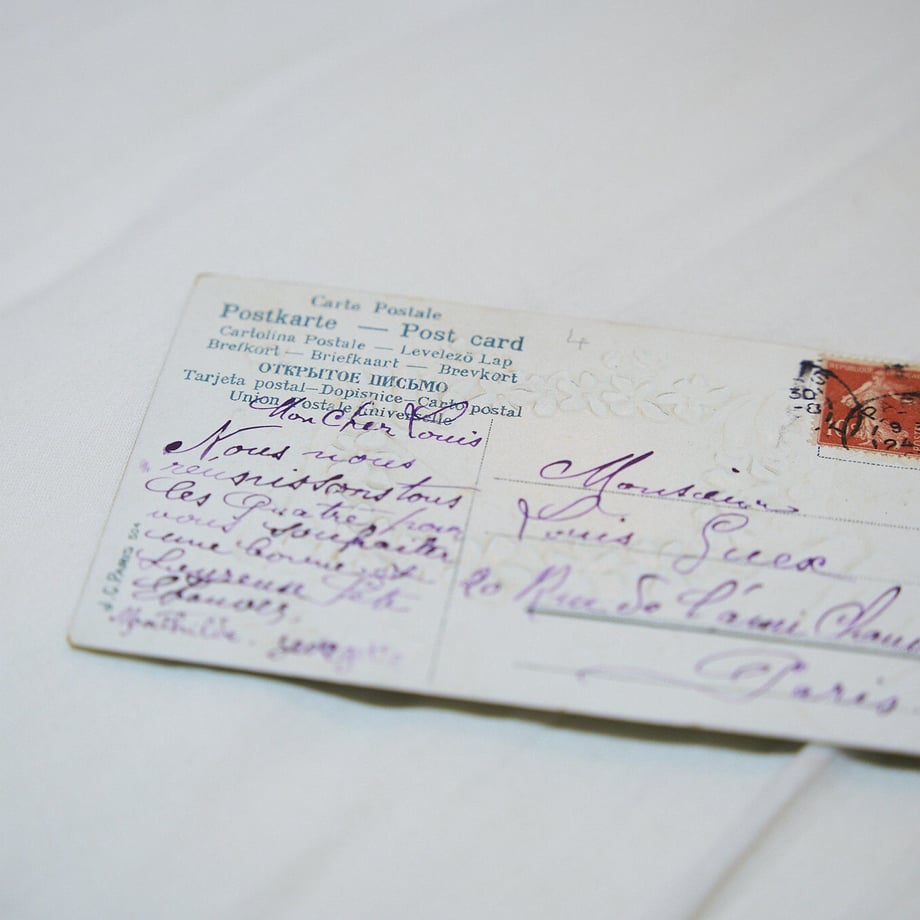 Carte Postale
Postkarte — Post card
Cartolina Postale — Levelező Lap
Brefkort — Briefkaart — Brevkort
ОТКРЫТОЕ ПИСЬМО
Tarjeta postal—Dopisnice—Carto postal
Union Postale Universelle
4
Mon Cher Louis
Nous nous
reunissons tous
les Quatres pour
vous souhaiter
une bonne et
heureuse fête
Monsieur
Louis Guex
20 Rue de l'ami
Paris
REPUBLIQUE
10
30